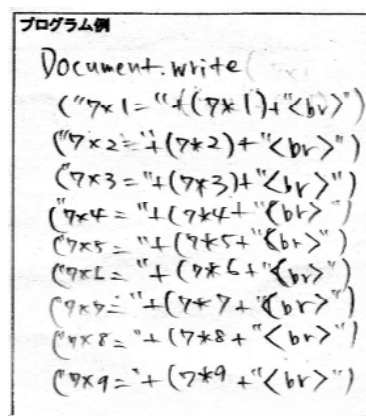 プログラム例
Document.write(
("7×1="+(7*1)+"<br>")
("7×2="+(7*2)+"<br>")
("7×3="+(7*3)+"<br>")
("7×4="+(7*4+"<br>")
("7×5="+(7*5+"<br>")
("7×6="+(7*6+"<br>")
("7×7="+(7*7+"<br>")
("7×8="+(7*8+"<br>")
("7×9="+(7*9+"<br>")